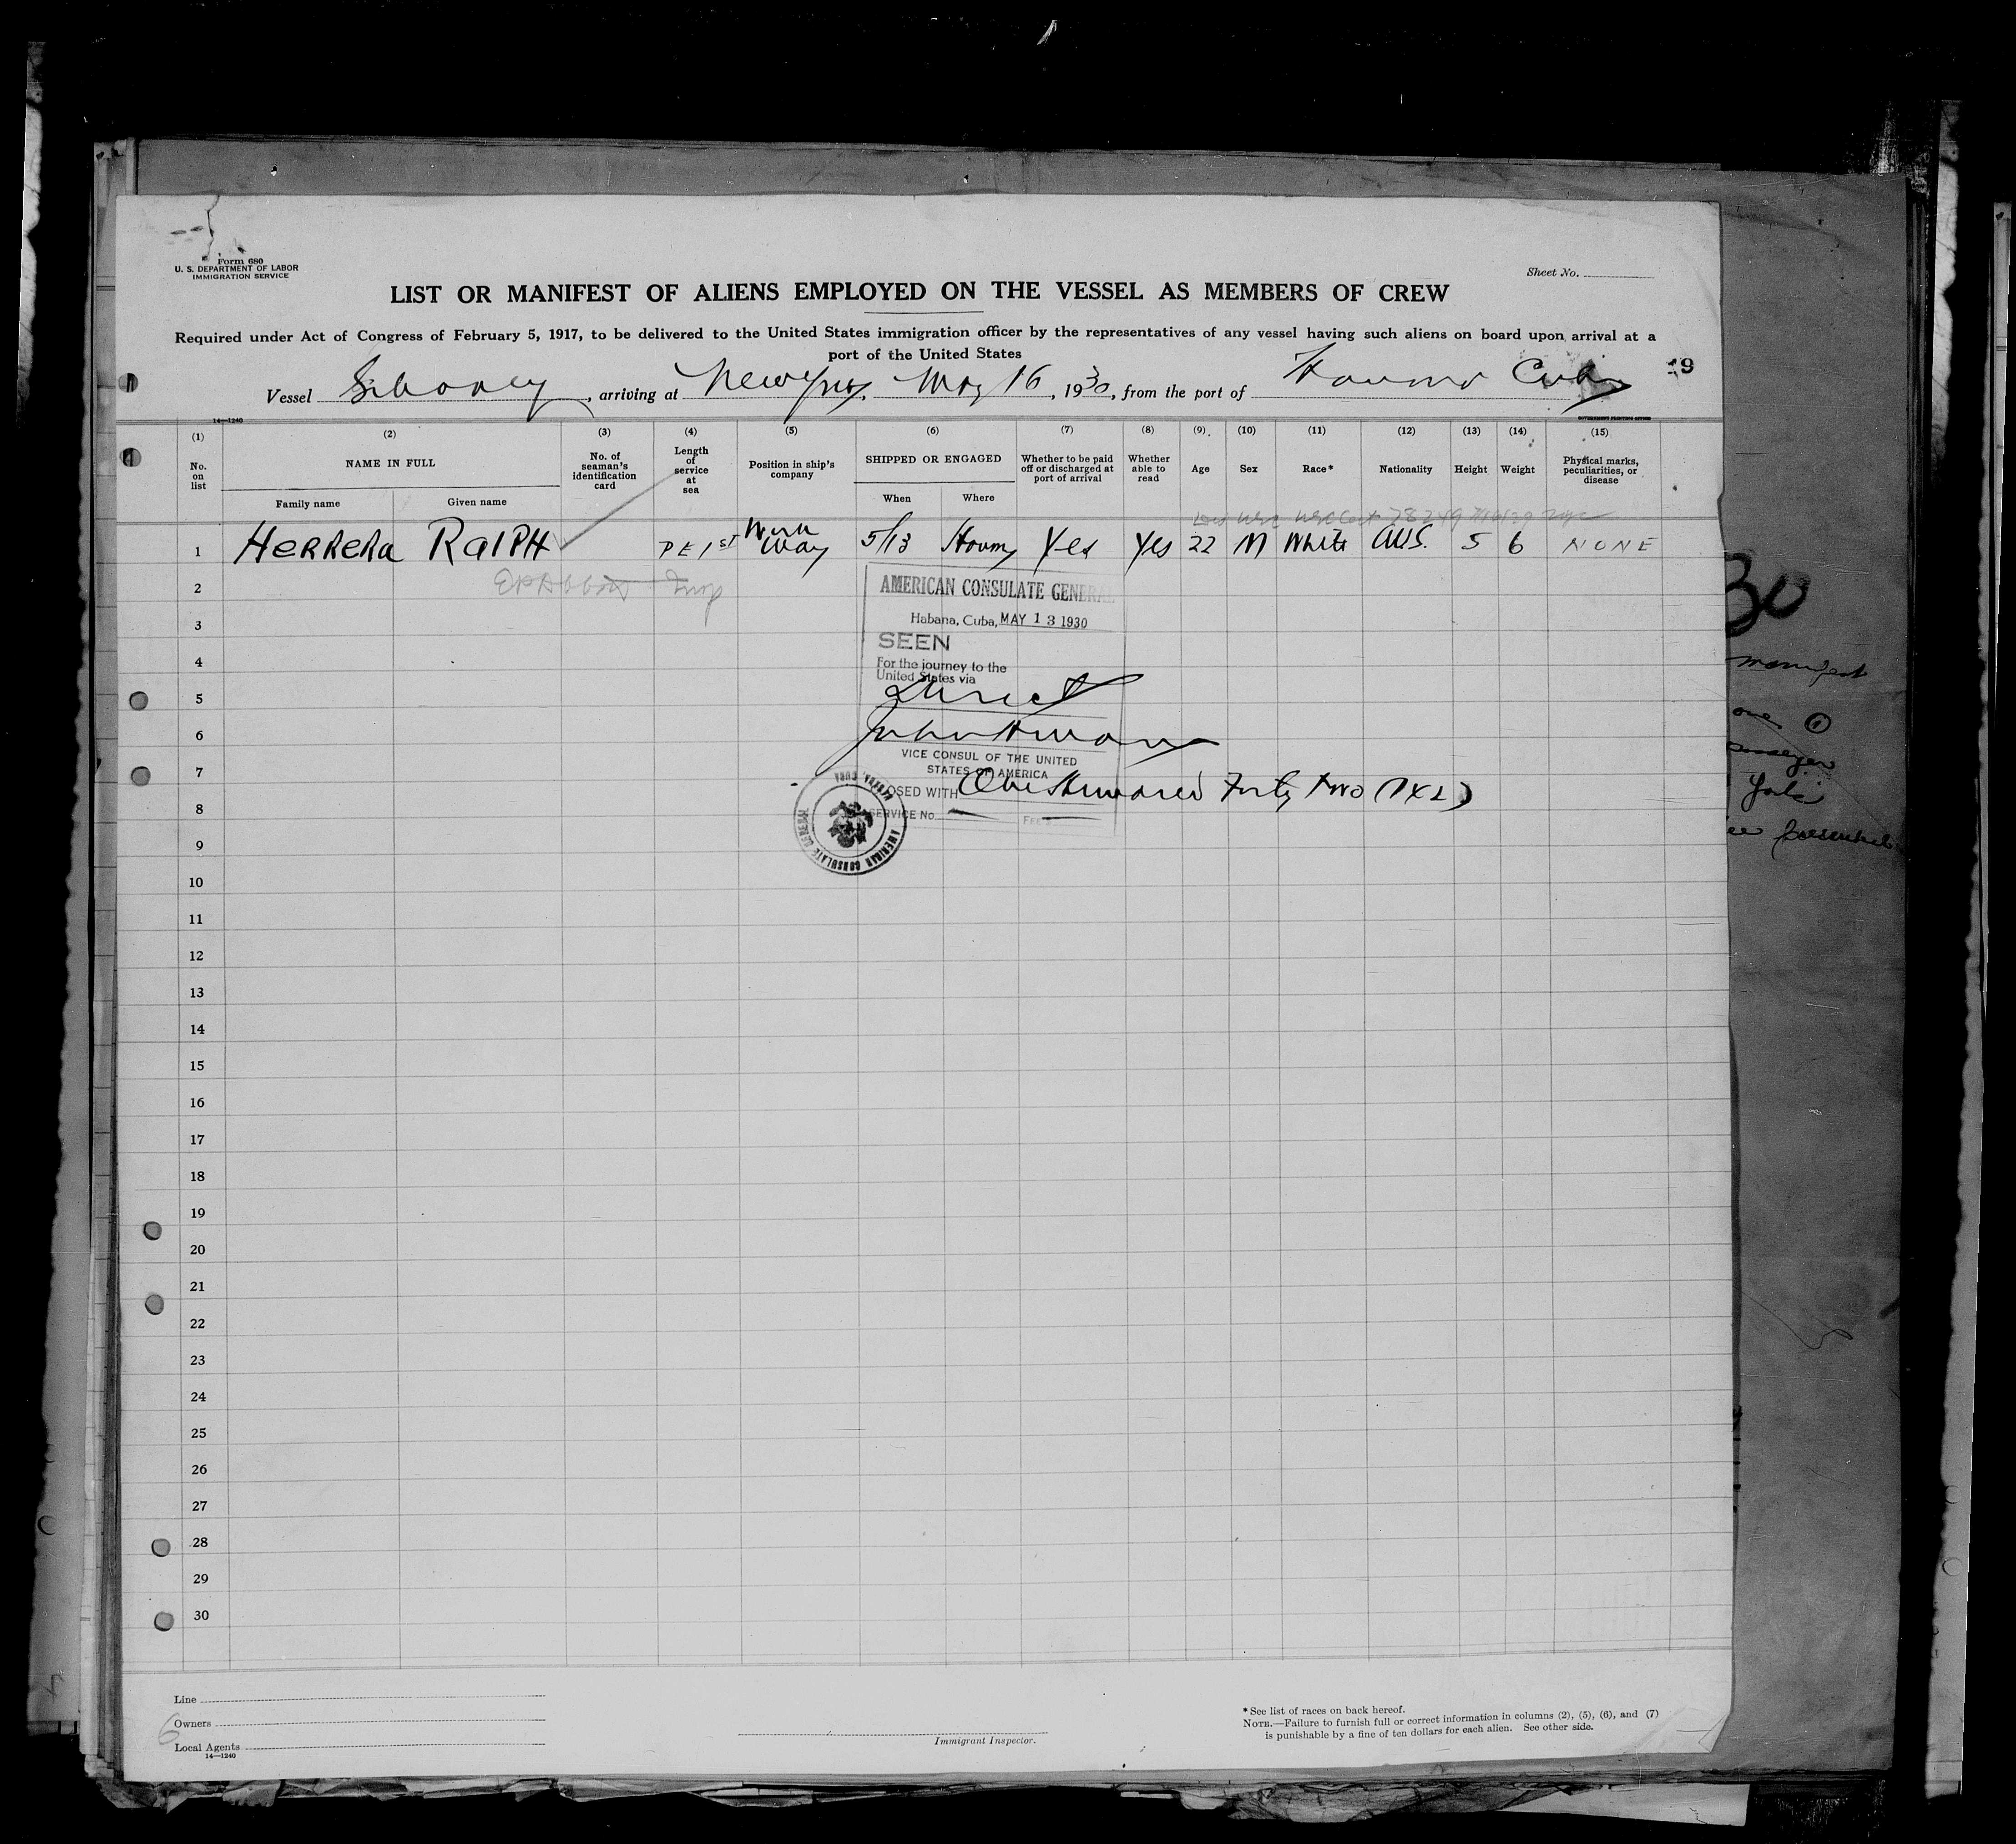 Form 680
U. S. DEPARTMENT OF LABOR
IMMIGRATION SERVICE
Sheet No.
LIST OR MANIFEST OF ALIENS EMPLOYED ON THE VESSEL AS MEMBERS OF CREW
Required under Act of Congress of February 5, 1917, to be delivered to the United States immigration officer by the representatives of any vessel having such aliens on board upon arrival at a
port of the United States
9
Vessel Siboney, arriving at New York, May 16, 1930, from the port of Havana Cuba
14—1240
GOVERNMENT PRINTING OFFICE
(1) (2) (3) (4) (5) (6) (7) (8) (9) (10) (11) (12) (13) (14) (15)
No. on list
NAME IN FULL
Family name
Given name
No. of seaman's identification card
Length of service at sea
Position in ship's company
SHIPPED OR ENGAGED
When
Where
Whether to be paid off or discharged at port of arrival
Whether able to read
Age
Sex
Race*
Nationality
Height
Weight
Physical marks, peculiarities, or disease
1 HERRERA RALPH 1ST Work Way 5/13 Havana Yes Yes 22 M White 5 6 NONE
2
AMERICAN CONSULATE GENERAL
3
Habana, Cuba, MAY 13 1930
SEEN
4
For the journey to the
United States via
5
Direct
6
VICE CONSUL OF THE UNITED
STATES OF AMERICA
7
OSED WITH One Hundred Forty Two (142)
8
SERVICE No. FEE
AMERICAN CONSULATE GENERAL
HABANA, CUBA
9
10
11
12
13
14
15
16
17
18
19
20
21
22
23
24
25
26
27
28
29
30
Line
6
Owners
Local Agents
14—1240
Immigrant Inspector.
*See list of races on back hereof.
NOTE.—Failure to furnish full or correct information in columns (2), (5), (6), and (7)
is punishable by a fine of ten dollars for each alien. See other side.
30
manifest